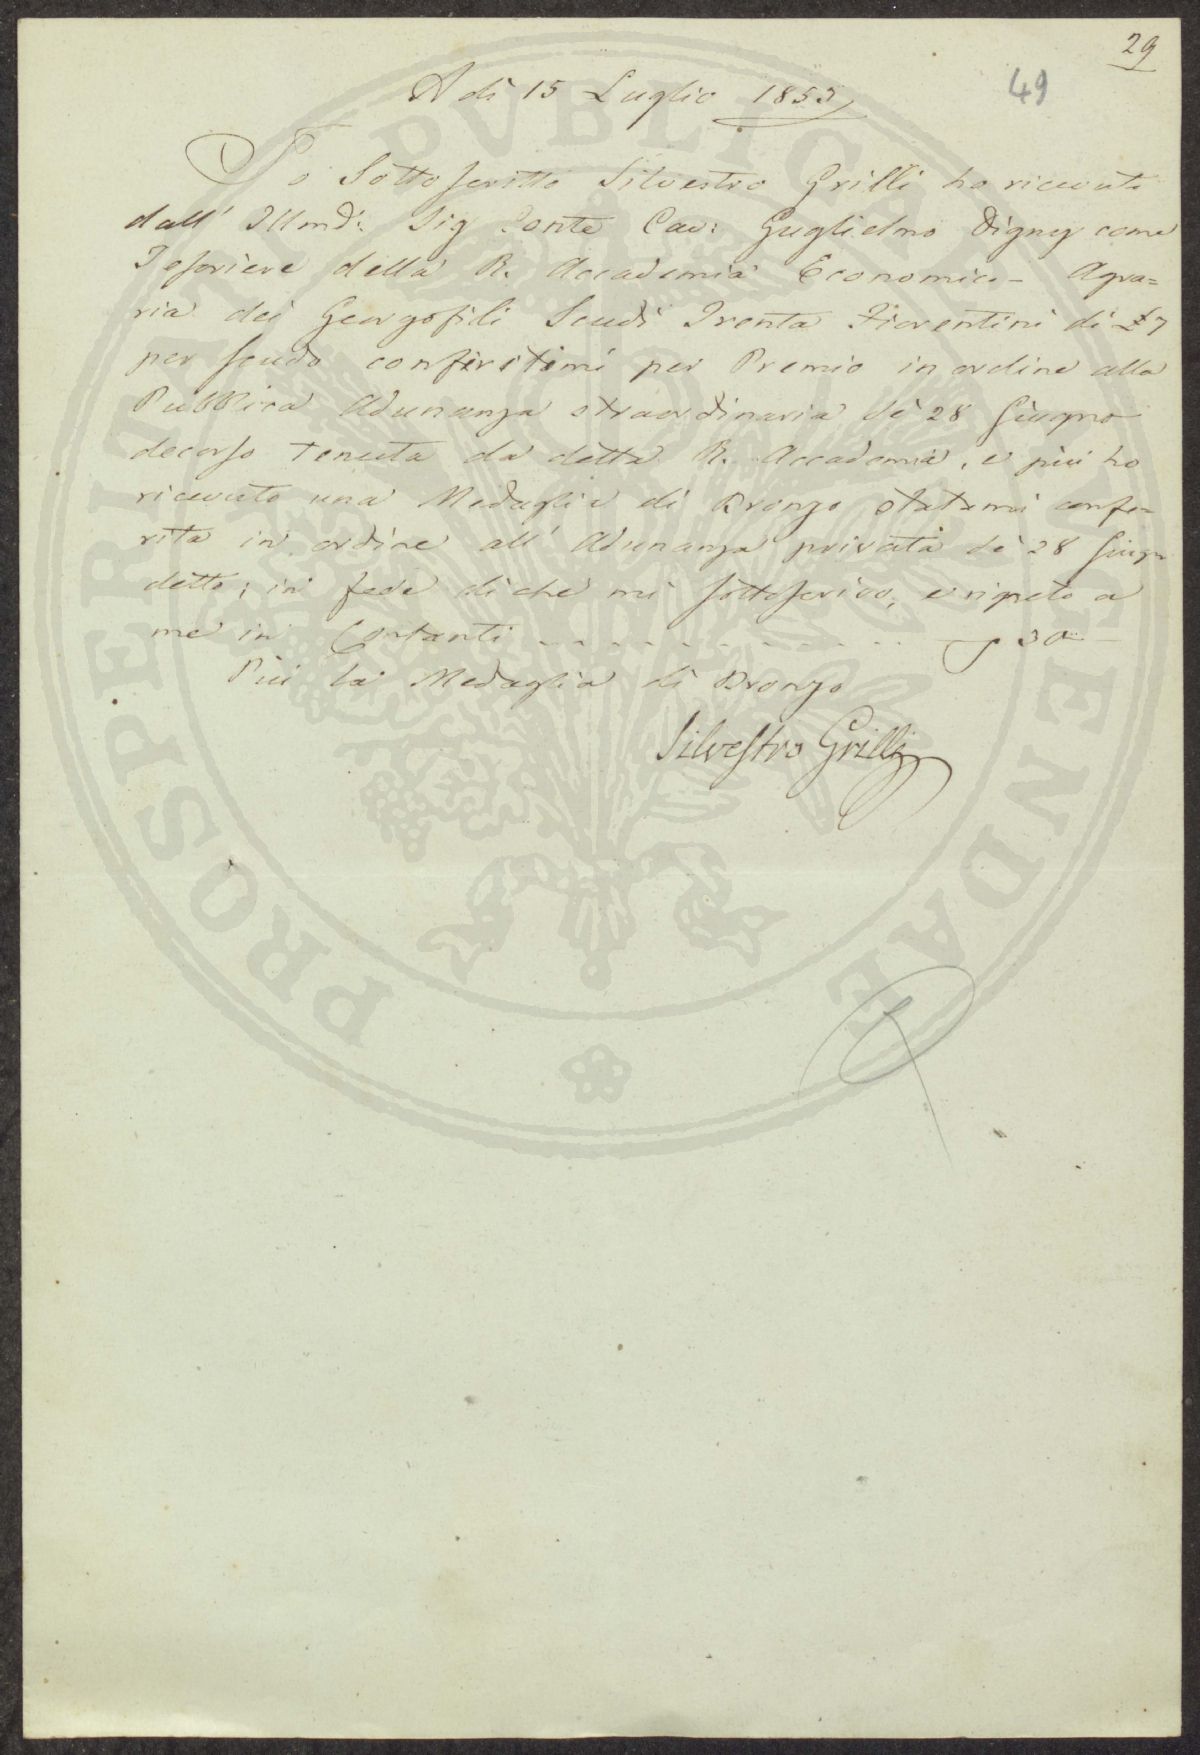 29
49
A dì 15 Luglio 1853
Io Sottoscritto Silvestro Grilli ho ricevuti
dall' Illmo: Sig Conte Cav: Guglielmo Digny come
Tesoriere della R. Accademia Economico- Agra=
ria dei Georgofili Scudi Trenta Fiorentini di £7
per scudo conferitimi per Premio in ordine alla
Pubblica Adunanza straordinaria de 28 Giugno
decorso tenuta da detta R. Accademia, e più ho
ricevuto una Medaglia di Bronzo statami confe=
rita in ordine all' Adunanza privata de 28 Giugn
detto; in fede di che mi sottoscrivo, e ripeto a
me in Contanti 30
Più la Medaglia di Bronzo
Silvestro Grilli
PROSPERITATI PVBLICAE AVGENDAE